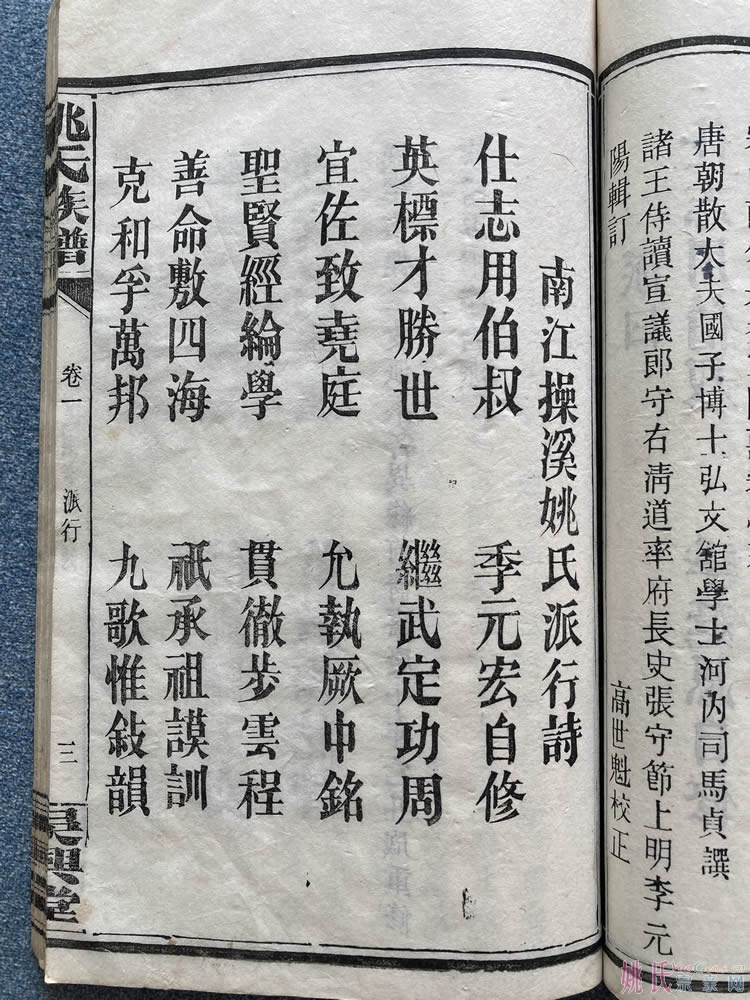 唐朝散大夫國子博士弘文舘學士河內司馬貞譔
諸王侍讀宣議郎守右清道率府長史張守節上明李元
陽輯訂
高世魁校正
南江操溪姚氏派行詩
仕志用伯叔 季元宏自修
英標才勝世 繼武定功周
宜佐致堯庭 允執厥中銘
聖賢經綸學 貫徹步雲程
善命敷四海 祇承祖謨訓
克和孚萬邦 九歌惟敍韻
姚氏族譜
卷一
派行
三
吳興堂
姚氏宗親网